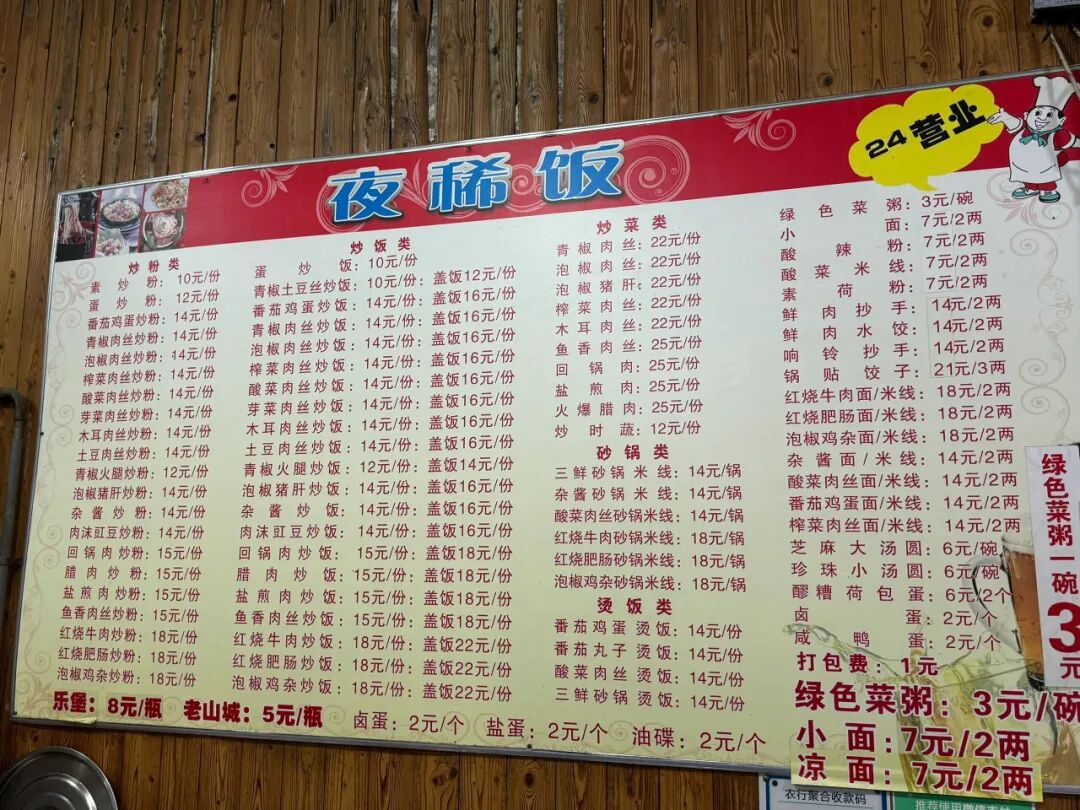 夜稀饭
24营业
炒粉类
素炒粉：10元/份
蛋炒粉：12元/份
番茄鸡蛋炒粉：14元/份
青椒肉丝炒粉：14元/份
泡椒肉丝炒粉：14元/份
榨菜肉丝炒粉：14元/份
酸菜肉丝炒粉：14元/份
芽菜肉丝炒粉：14元/份
木耳肉丝炒粉：14元/份
土豆肉丝炒粉：14元/份
青椒火腿炒粉：12元/份
泡椒猪肝炒粉：14元/份
杂酱炒粉：14元/份
肉沫豇豆炒粉：14元/份
回锅肉炒粉：15元/份
腊肉炒粉：15元/份
盐煎肉炒粉：15元/份
鱼香肉丝炒粉：15元/份
红烧牛肉炒粉：18元/份
红烧肥肠炒粉：18元/份
泡椒鸡杂炒粉：18元/份
炒饭类
蛋炒饭：10元/份
青椒土豆丝炒饭：10元/份：盖饭12元/份
番茄鸡蛋炒饭：14元/份：盖饭16元/份
青椒肉丝炒饭：14元/份：盖饭16元/份
泡椒肉丝炒饭：14元/份：盖饭16元/份
榨菜肉丝炒饭：14元/份：盖饭16元/份
酸菜肉丝炒饭：14元/份：盖饭16元/份
芽菜肉丝炒饭：14元/份：盖饭16元/份
木耳肉丝炒饭：14元/份：盖饭16元/份
土豆肉丝炒饭：14元/份：盖饭16元/份
青椒火腿炒饭：12元/份：盖饭14元/份
泡椒猪肝炒饭：14元/份：盖饭16元/份
杂酱炒饭：14元/份：盖饭16元/份
肉沫豇豆炒饭：14元/份：盖饭16元/份
回锅肉炒饭：15元/份：盖饭18元/份
腊肉炒饭：15元/份：盖饭18元/份
盐煎肉炒饭：15元/份：盖饭18元/份
鱼香肉丝炒饭：15元/份：盖饭18元/份
红烧牛肉炒饭：18元/份：盖饭22元/份
红烧肥肠炒饭：18元/份：盖饭22元/份
泡椒鸡杂炒饭：18元/份：盖饭22元/份
炒菜类
青椒肉丝：22元/份
泡椒肉丝：22元/份
泡椒猪肝：22元/份
榨菜肉丝：22元/份
木耳肉丝：22元/份
鱼香肉丝：25元/份
回锅肉：25元/份
盐煎肉：25元/份
火爆腊肉：25元/份
炒时蔬：12元/份
砂锅类
三鲜砂锅米线：14元/锅
杂酱砂锅米线：14元/锅
酸菜肉丝砂锅米线：14元/锅
红烧牛肉砂锅米线：18元/锅
红烧肥肠砂锅米线：18元/锅
泡椒鸡杂砂锅米线：18元/锅
烫饭类
番茄鸡蛋烫饭：14元/份
番茄丸子烫饭：14元/份
酸菜肉丝烫饭：14元/份
三鲜砂锅烫饭：14元/份
绿色菜粥：3元/碗
小面：7元/2两
酸辣粉：7元/2两
酸菜米线：7元/2两
素荷粉：7元/2两
鲜肉抄手：14元/2两
鲜肉水饺：14元/2两
响铃抄手：14元/2两
锅贴饺子：21元/3两
红烧牛肉面/米线：18元/2两
红烧肥肠面/米线：18元/2两
泡椒鸡杂面/米线：18元/2两
杂酱面/米线：14元/2两
酸菜肉丝面/米线：14元/2两
番茄鸡蛋面/米线：14元/2两
榨菜肉丝面/米线：14元/2两
芝麻大汤圆：6元/碗
珍珠小汤圆：6元/碗
醪糟荷包蛋：6元/2个
卤蛋：2元/个
咸鸭蛋：2元/个
打包费：1元
绿色菜粥：3元/碗
小面：7元/2两
凉面：7元/2两
乐堡：8元/瓶 老山城：5元/瓶 卤蛋：2元/个 盐蛋：2元/个 油碟：2元/个
绿色菜粥一碗3元
农行聚合收款码
推荐使用微信支